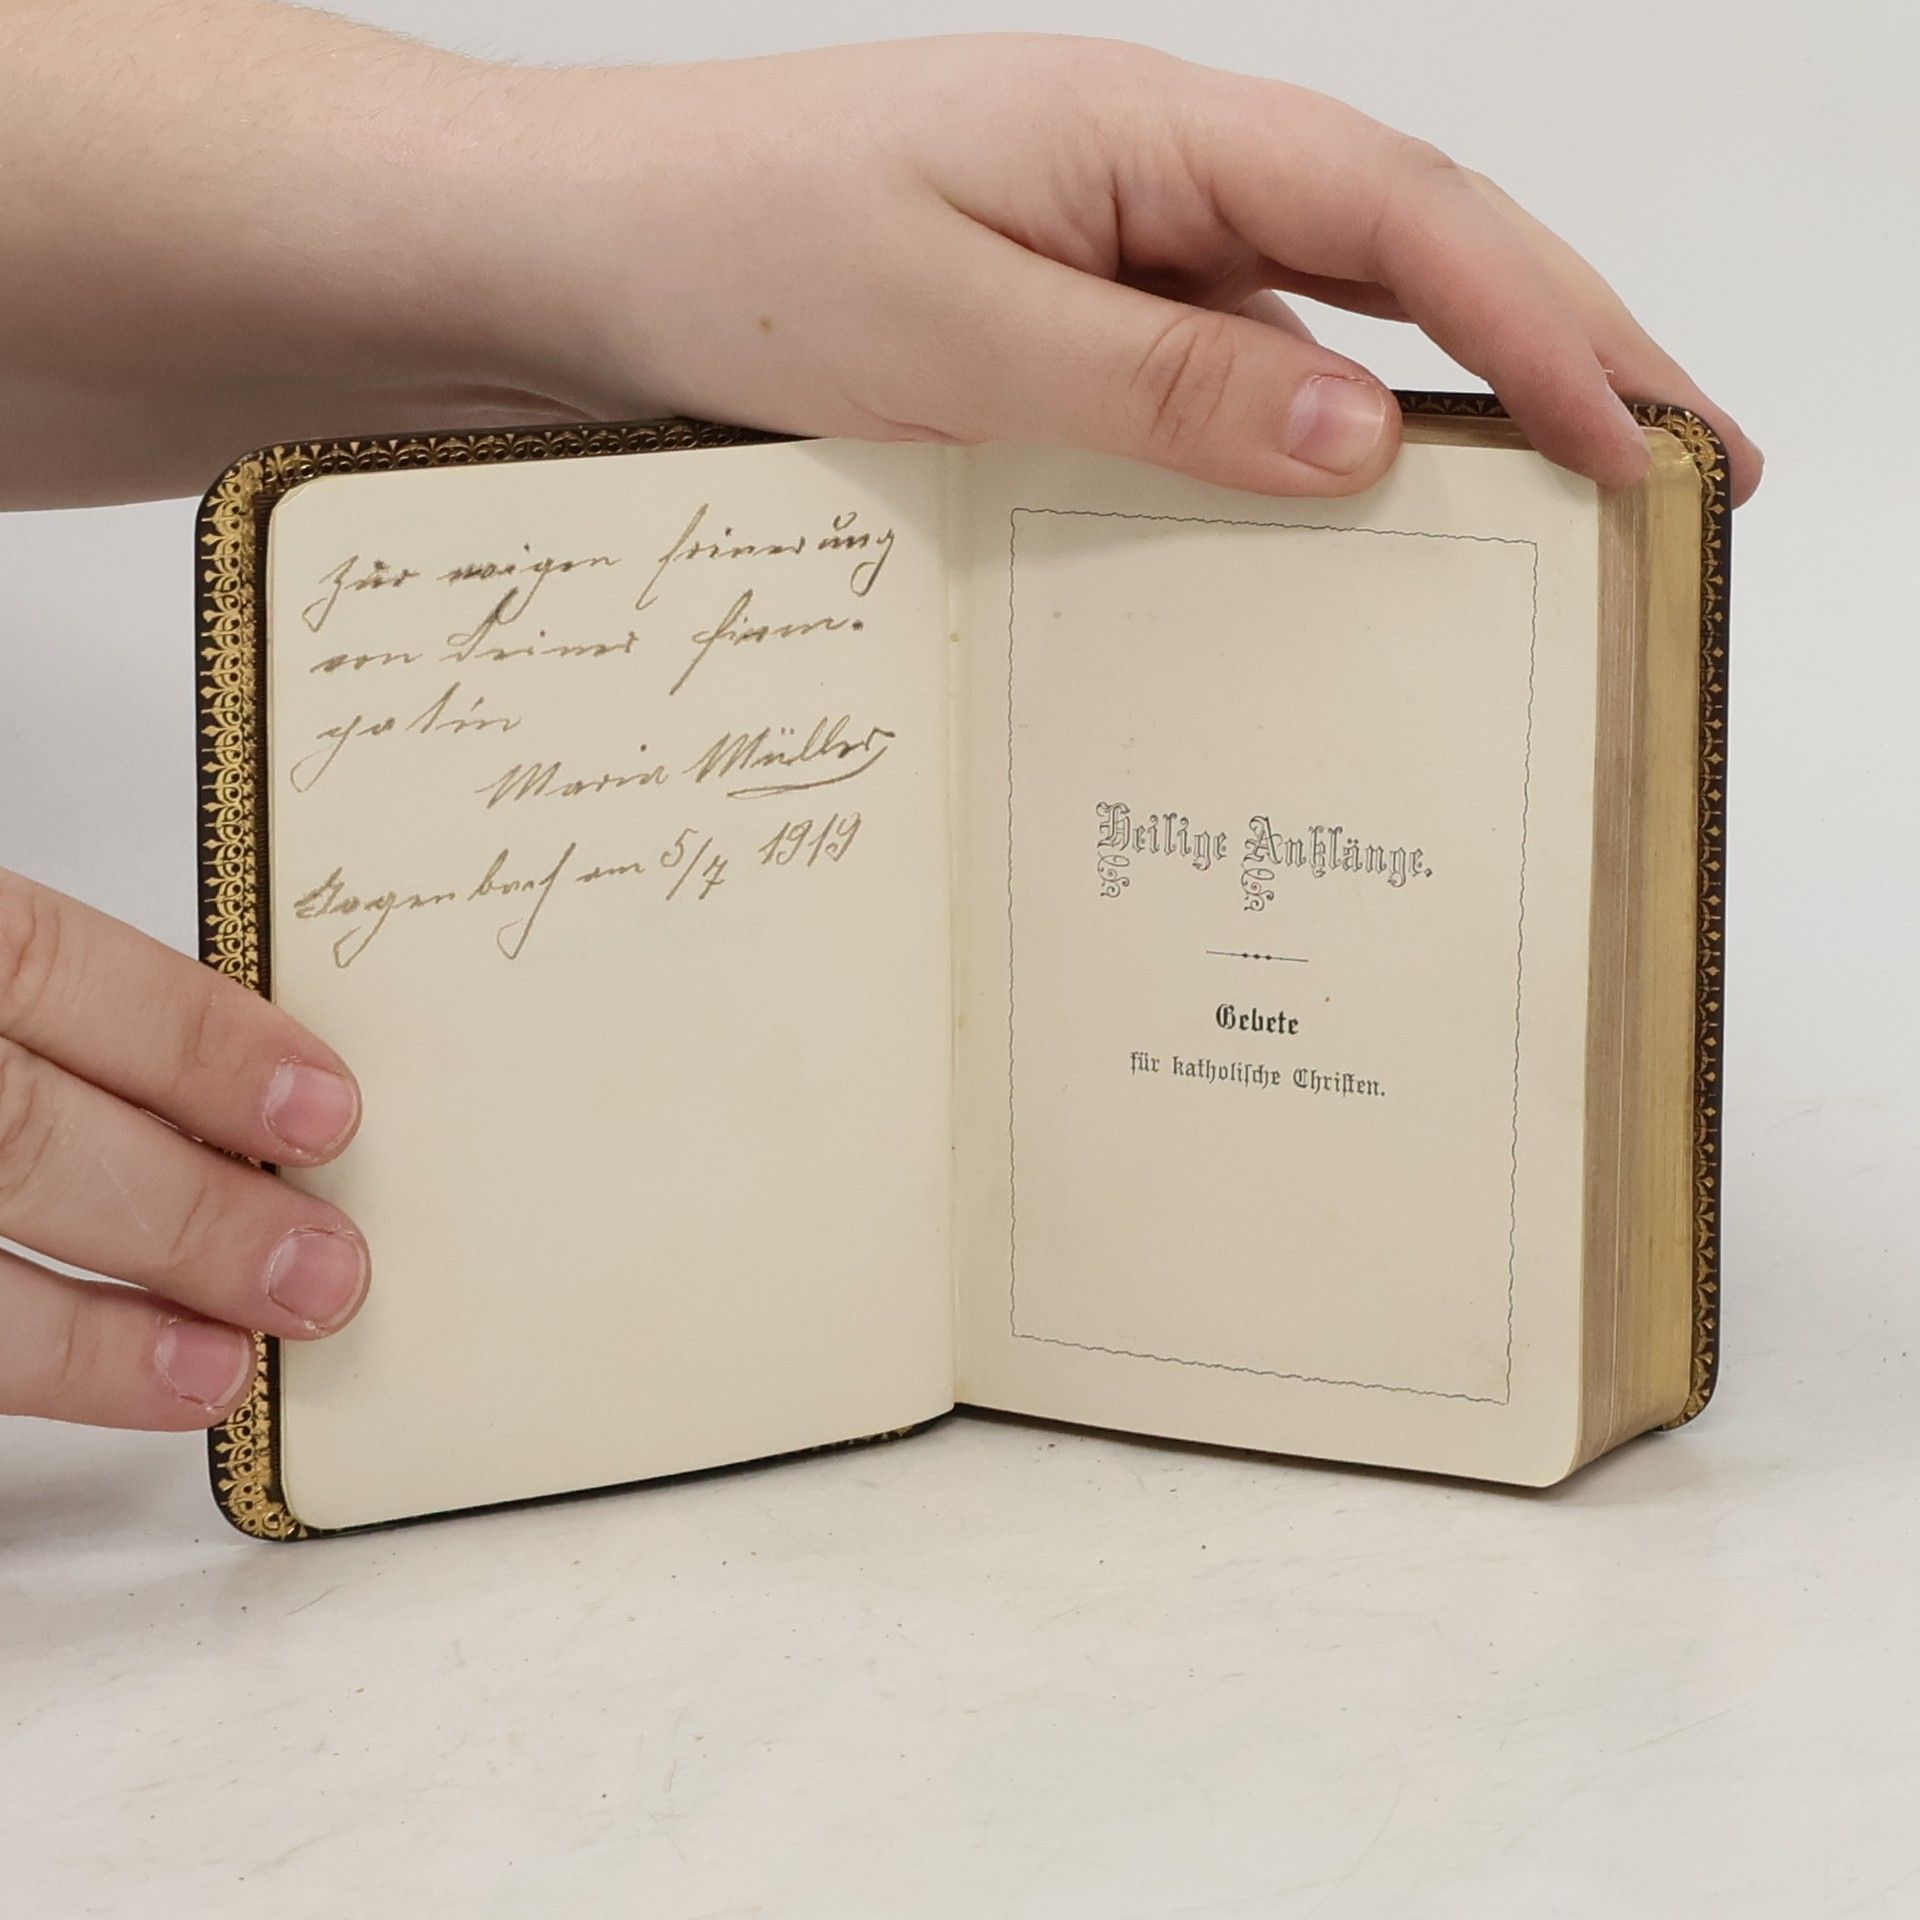 Zur ewigen Erinerung
von Deiner Firm-
patin
Maria Müller
am 5/7 1919
Heilige Anklänge.
Gebete
für katholische Christen.